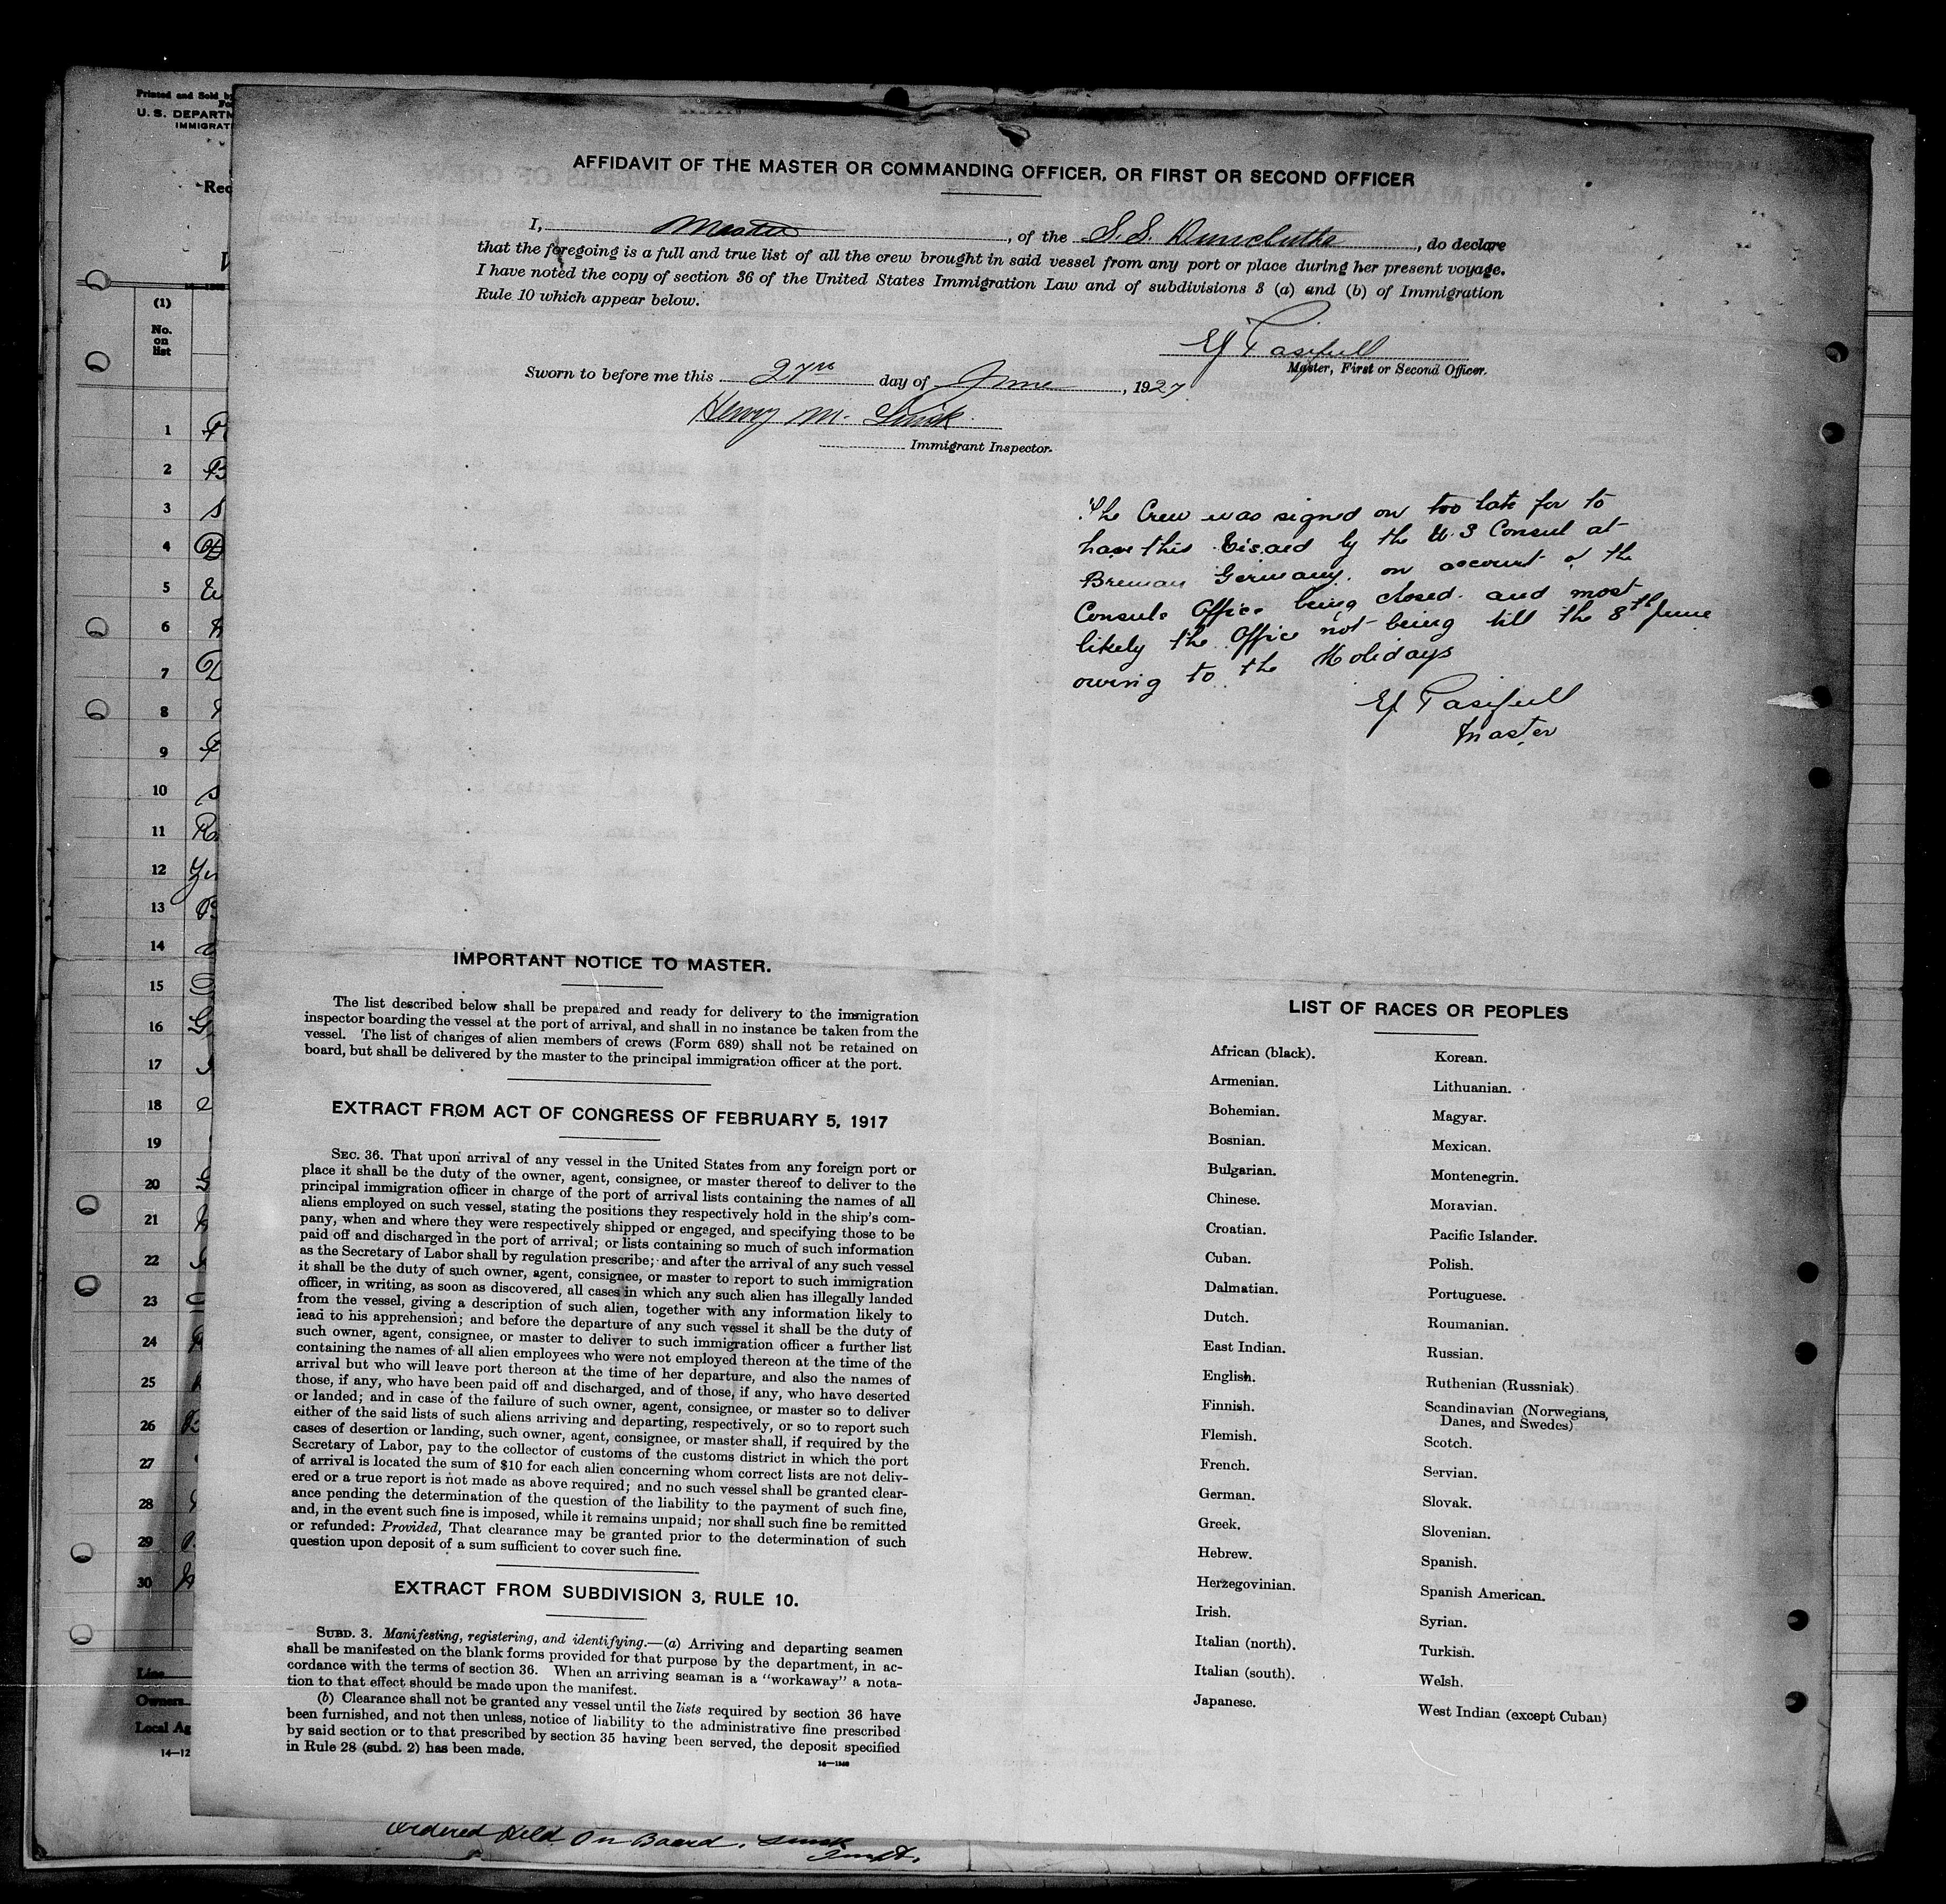 Printed and Sold by
U. S. DEPARTM
IMMIGRAT
Req
(1)
No.
on
list
1
2
3
4
5
6
7
8
9
10
11
12
13
14
15
16
17
18
19
20
21
22
23
24
25
26
27
28
29
30
Line
Owners
Local Ag
14—12
AFFIDAVIT OF THE MASTER OR COMMANDING OFFICER, OR FIRST OR SECOND OFFICER
I, Master, of the S.S. , do declare
that the foregoing is a full and true list of all the crew brought in said vessel from any port or place during her present voyage.
I have noted the copy of section 36 of the United States Immigration Law and of subdivisions 3 (a) and (b) of Immigration
Rule 10 which appear below.
Master, First or Second Officer.
Sworn to before me this 27 day of June, 1927
Henry M.
Immigrant Inspector.
The Crew was signed on too late for to
have this Visaed by the U.S Consul at
Breman Germany. on account of the
Consuls Office being closed. and most
likely the Office not being till the 8th June
owing to the Holidays
Master
IMPORTANT NOTICE TO MASTER.
The list described below shall be prepared and ready for delivery to the immigration
inspector boarding the vessel at the port of arrival, and shall in no instance be taken from the
vessel. The list of changes of alien members of crews (Form 689) shall not be retained on
board, but shall be delivered by the master to the principal immigration officer at the port.
EXTRACT FROM ACT OF CONGRESS OF FEBRUARY 5, 1917
SEC. 36. That upon arrival of any vessel in the United States from any foreign port or
place it shall be the duty of the owner, agent, consignee, or master thereof to deliver to the
principal immigration officer in charge of the port of arrival lists containing the names of all
aliens employed on such vessel, stating the positions they respectively hold in the ship's com-
pany, when and where they were respectively shipped or engaged, and specifying those to be
paid off and discharged in the port of arrival; or lists containing so much of such information
as the Secretary of Labor shall by regulation prescribe; and after the arrival of any such vessel
it shall be the duty of such owner, agent, consignee, or master to report to such immigration
officer, in writing, as soon as discovered, all cases in which any such alien has illegally landed
from the vessel, giving a description of such alien, together with any information likely to
lead to his apprehension; and before the departure of any such vessel it shall be the duty of
such owner, agent, consignee, or master to deliver to such immigration officer a further list
containing the names of all alien employees who were not employed thereon at the time of the
arrival but who will leave port thereon at the time of her departure, and also the names of
those, if any, who have been paid off and discharged, and of those, if any, who have deserted
or landed; and in case of the failure of such owner, agent, consignee, or master so to deliver
either of the said lists of such aliens arriving and departing, respectively, or so to report such
cases of desertion or landing, such owner, agent, consignee, or master shall, if required by the
Secretary of Labor, pay to the collector of customs of the customs district in which the port
of arrival is located the sum of $10 for each alien concerning whom correct lists are not deliv-
ered or a true report is not made as above required; and no such vessel shall be granted clear-
ance pending the determination of the question of the liability to the payment of such fine,
and, in the event such fine is imposed, while it remains unpaid; nor shall such fine be remitted
or refunded: Provided, That clearance may be granted prior to the determination of such
question upon deposit of a sum sufficient to cover such fine.
EXTRACT FROM SUBDIVISION 3, RULE 10.
SUBD. 3. Manifesting, registering, and identifying.—(a) Arriving and departing seamen
shall be manifested on the blank forms provided for that purpose by the department, in ac-
cordance with the terms of section 36. When an arriving seaman is a "workaway" a nota-
tion to that effect should be made upon the manifest.
(b) Clearance shall not be granted any vessel until the lists required by section 36 have
been furnished, and not then unless, notice of liability to the administrative fine prescribed
by said section or to that prescribed by section 35 having been served, the deposit specified
in Rule 28 (subd. 2) has been made.
LIST OF RACES OR PEOPLES
African (black).
Armenian.
Bohemian.
Bosnian.
Bulgarian.
Chinese.
Croatian.
Cuban.
Dalmatian.
Dutch.
East Indian.
English.
Finnish.
Flemish.
French.
German.
Greek.
Hebrew.
Herzegovinian.
Irish.
Italian (north).
Italian (south).
Japanese.
Korean.
Lithuanian.
Magyar.
Mexican.
Montenegrin.
Moravian.
Pacific Islander.
Polish.
Portuguese.
Roumanian.
Russian.
Ruthenian (Russniak).
Scandinavian (Norwegians,
Danes, and Swedes)
Scotch.
Servian.
Slovak.
Slovenian.
Spanish.
Spanish American.
Syrian.
Turkish.
Welsh.
West Indian (except Cuban)
Ordered Held On Board.